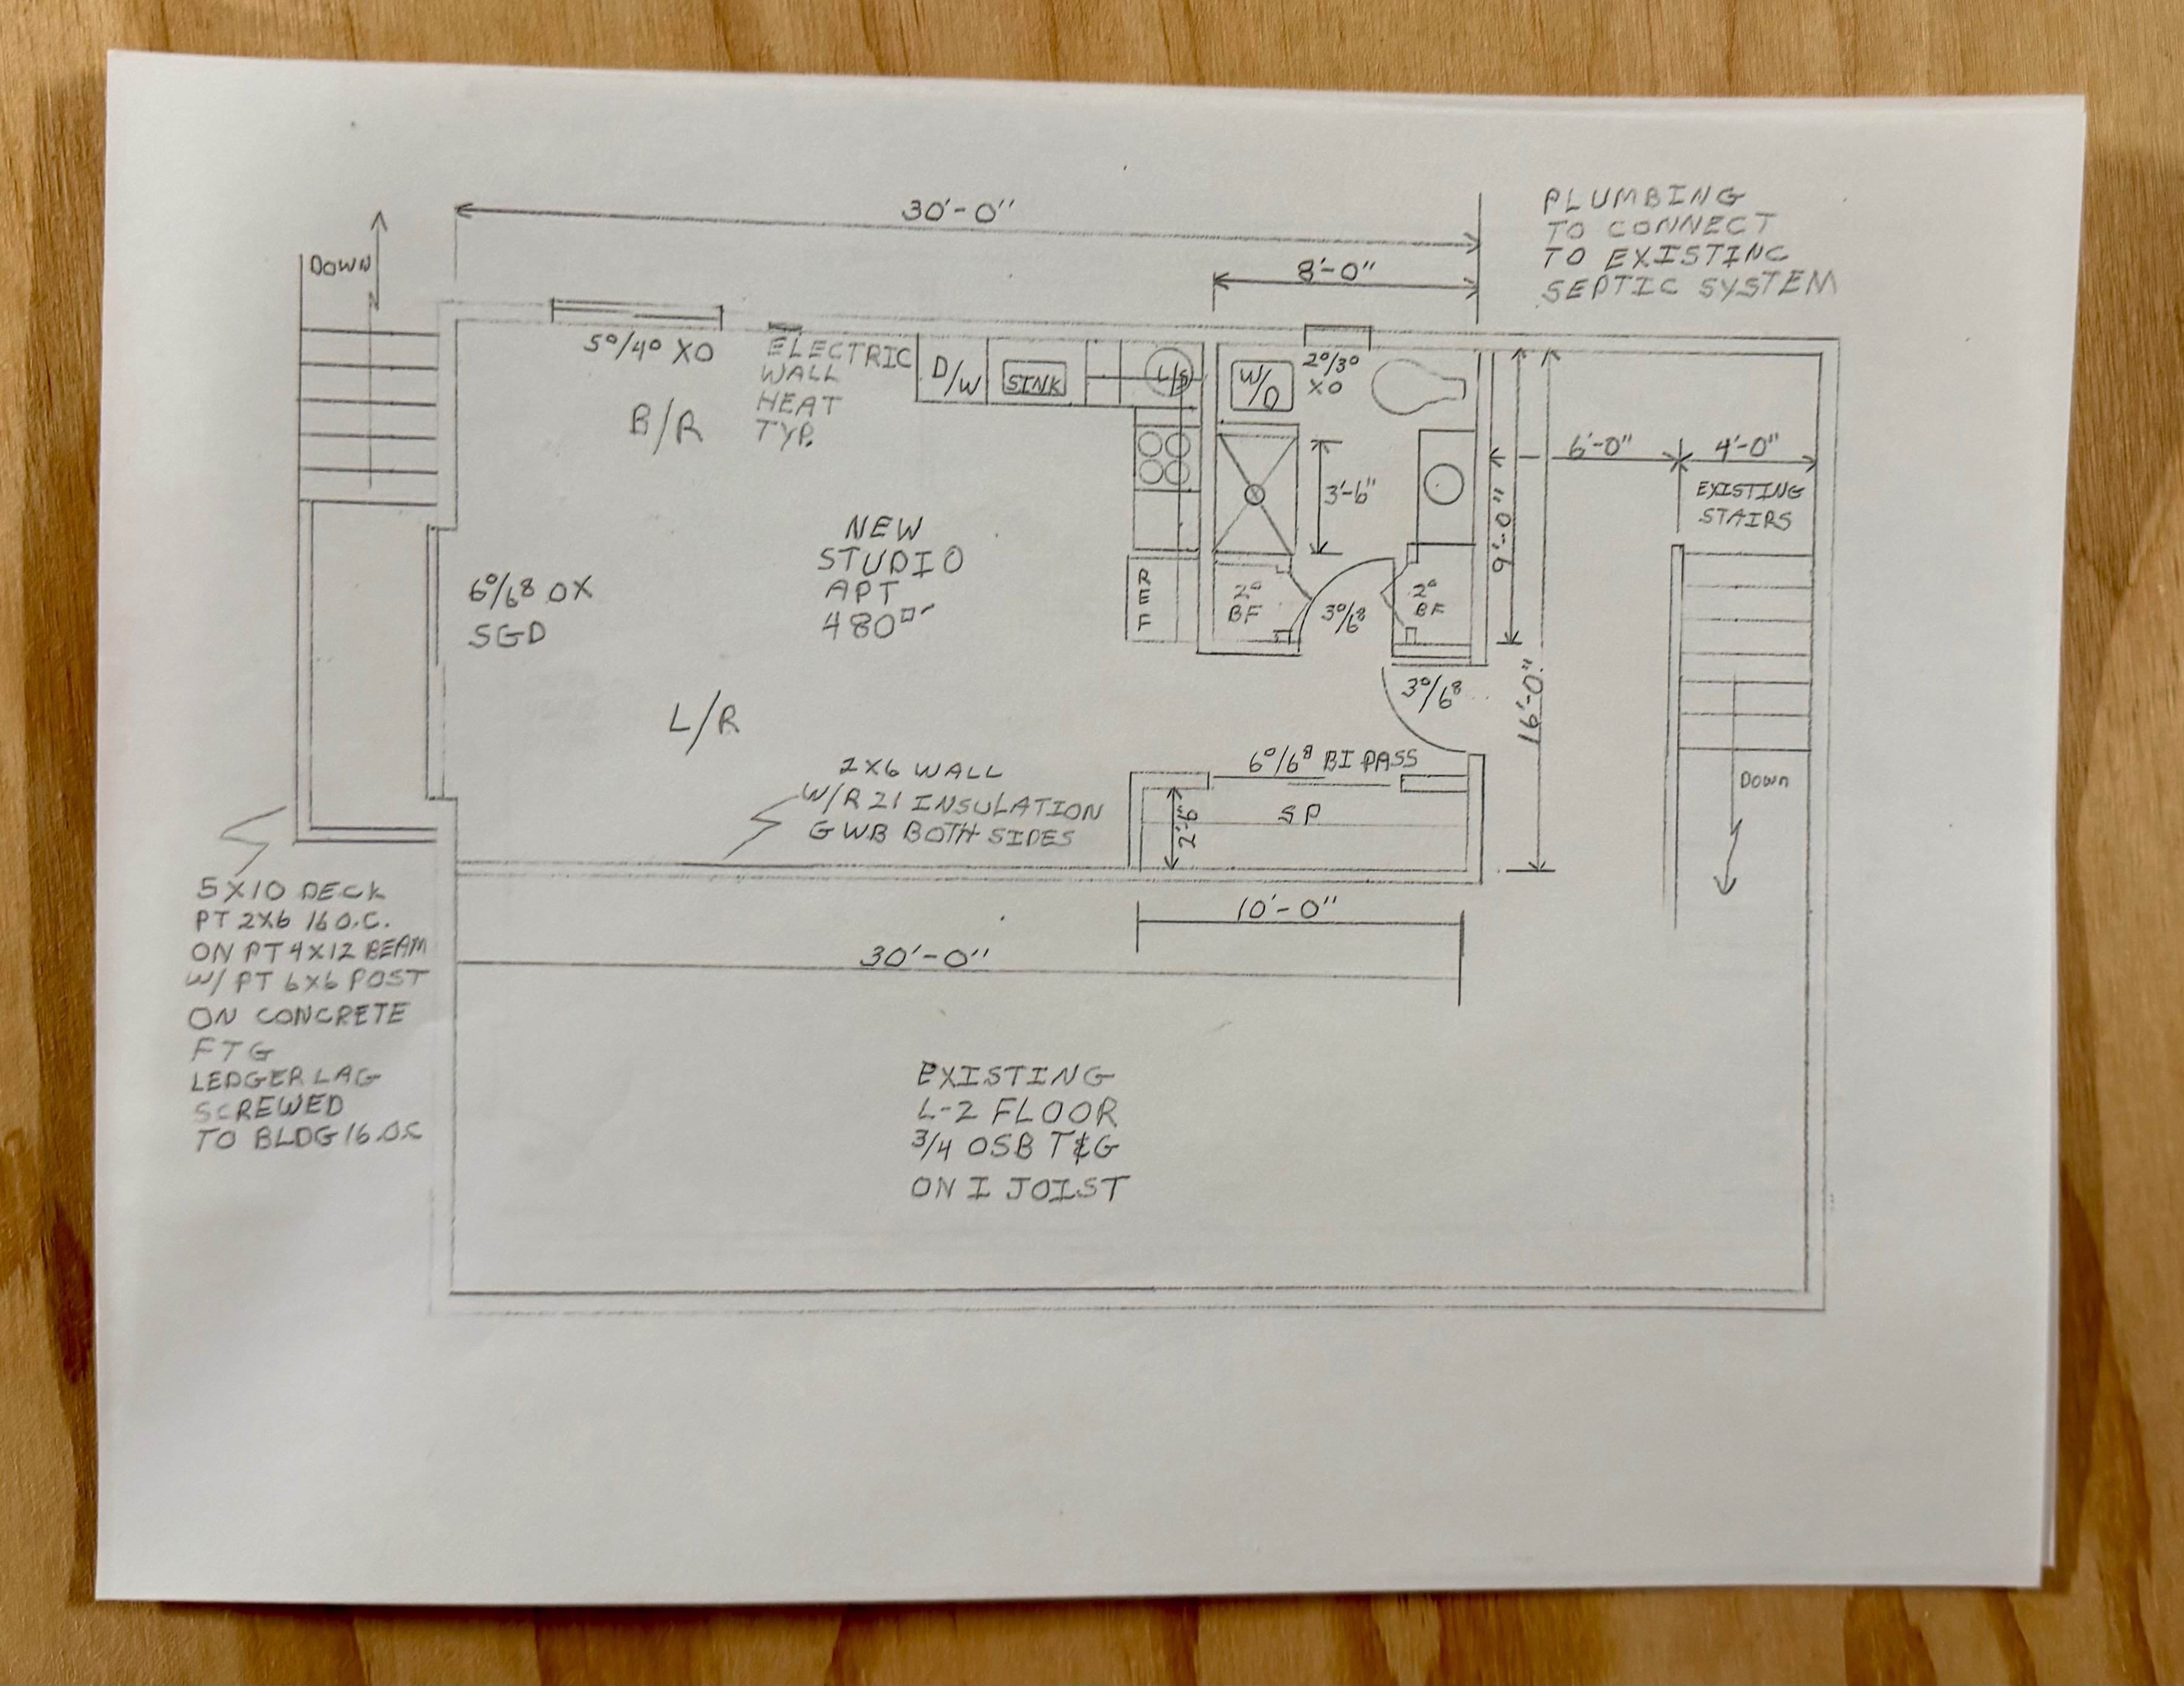 30'-0"
DOWN
8'-0"
PLUMBING
TO CONNECT
TO EXISTING
SEPTIC SYSTEM
5⁰/4⁰ XO
ELECTRIC
WALL
HEAT
TYP.
B/R
D/W
SINK
L/S
W/D
2⁰/3⁰
XO
6'-0"
4'-0"
EXISTING
STAIRS
3'-6"
9'-0"
NEW
STUDIO
APT
480
6⁰/6⁸ OX
SGD
REF
2⁰
BF
3⁰/6⁸
2⁰
BF
3⁰/6⁸
16'-0"
L/R
2X6 WALL
W/R 21 INSULATION
GWB BOTH SIDES
6⁰/6⁸ BI PASS
SP
2'-6"
DOWN
10'-0"
30'-0"
5X10 DECK
PT 2X6 16 O.C.
ON PT 4X12 BEAM
W/ PT 6X6 POST
ON CONCRETE
FTG
LEDGER LAG
SCREWED
TO BLDG 16.O.C
EXISTING
L-2 FLOOR
3/4 OSB T&G
ON I JOIST